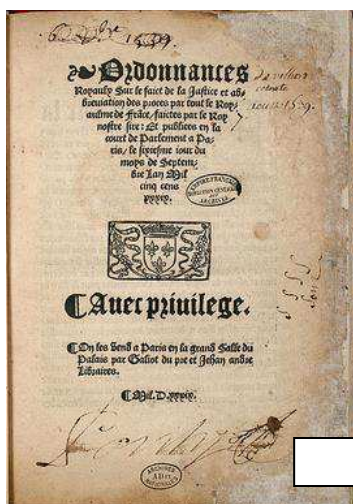 6 7bre 1539
Ordonnances
Royaulx Sur le faict de la Justice et ab-
breviation des proces par tout le Roy-
aulme de Frãce / faictes par le Roy
nostre sire: Et publiees en la
court de Parlement a Pa-
ris / le sixiesme iour du
moys de Septem-
bre Lan Mil
cinq cens
xxxix.
EMPIRE FRANÇAIS
ARCHIVES
¶ Avec privilege.
¶ On les vend a Paris en la grand Salle du
Palais par Galiot du pre et Jehan andre
Libraires.
¶ Mil. D. xxxix.
ARCHIVES
NATIONALES